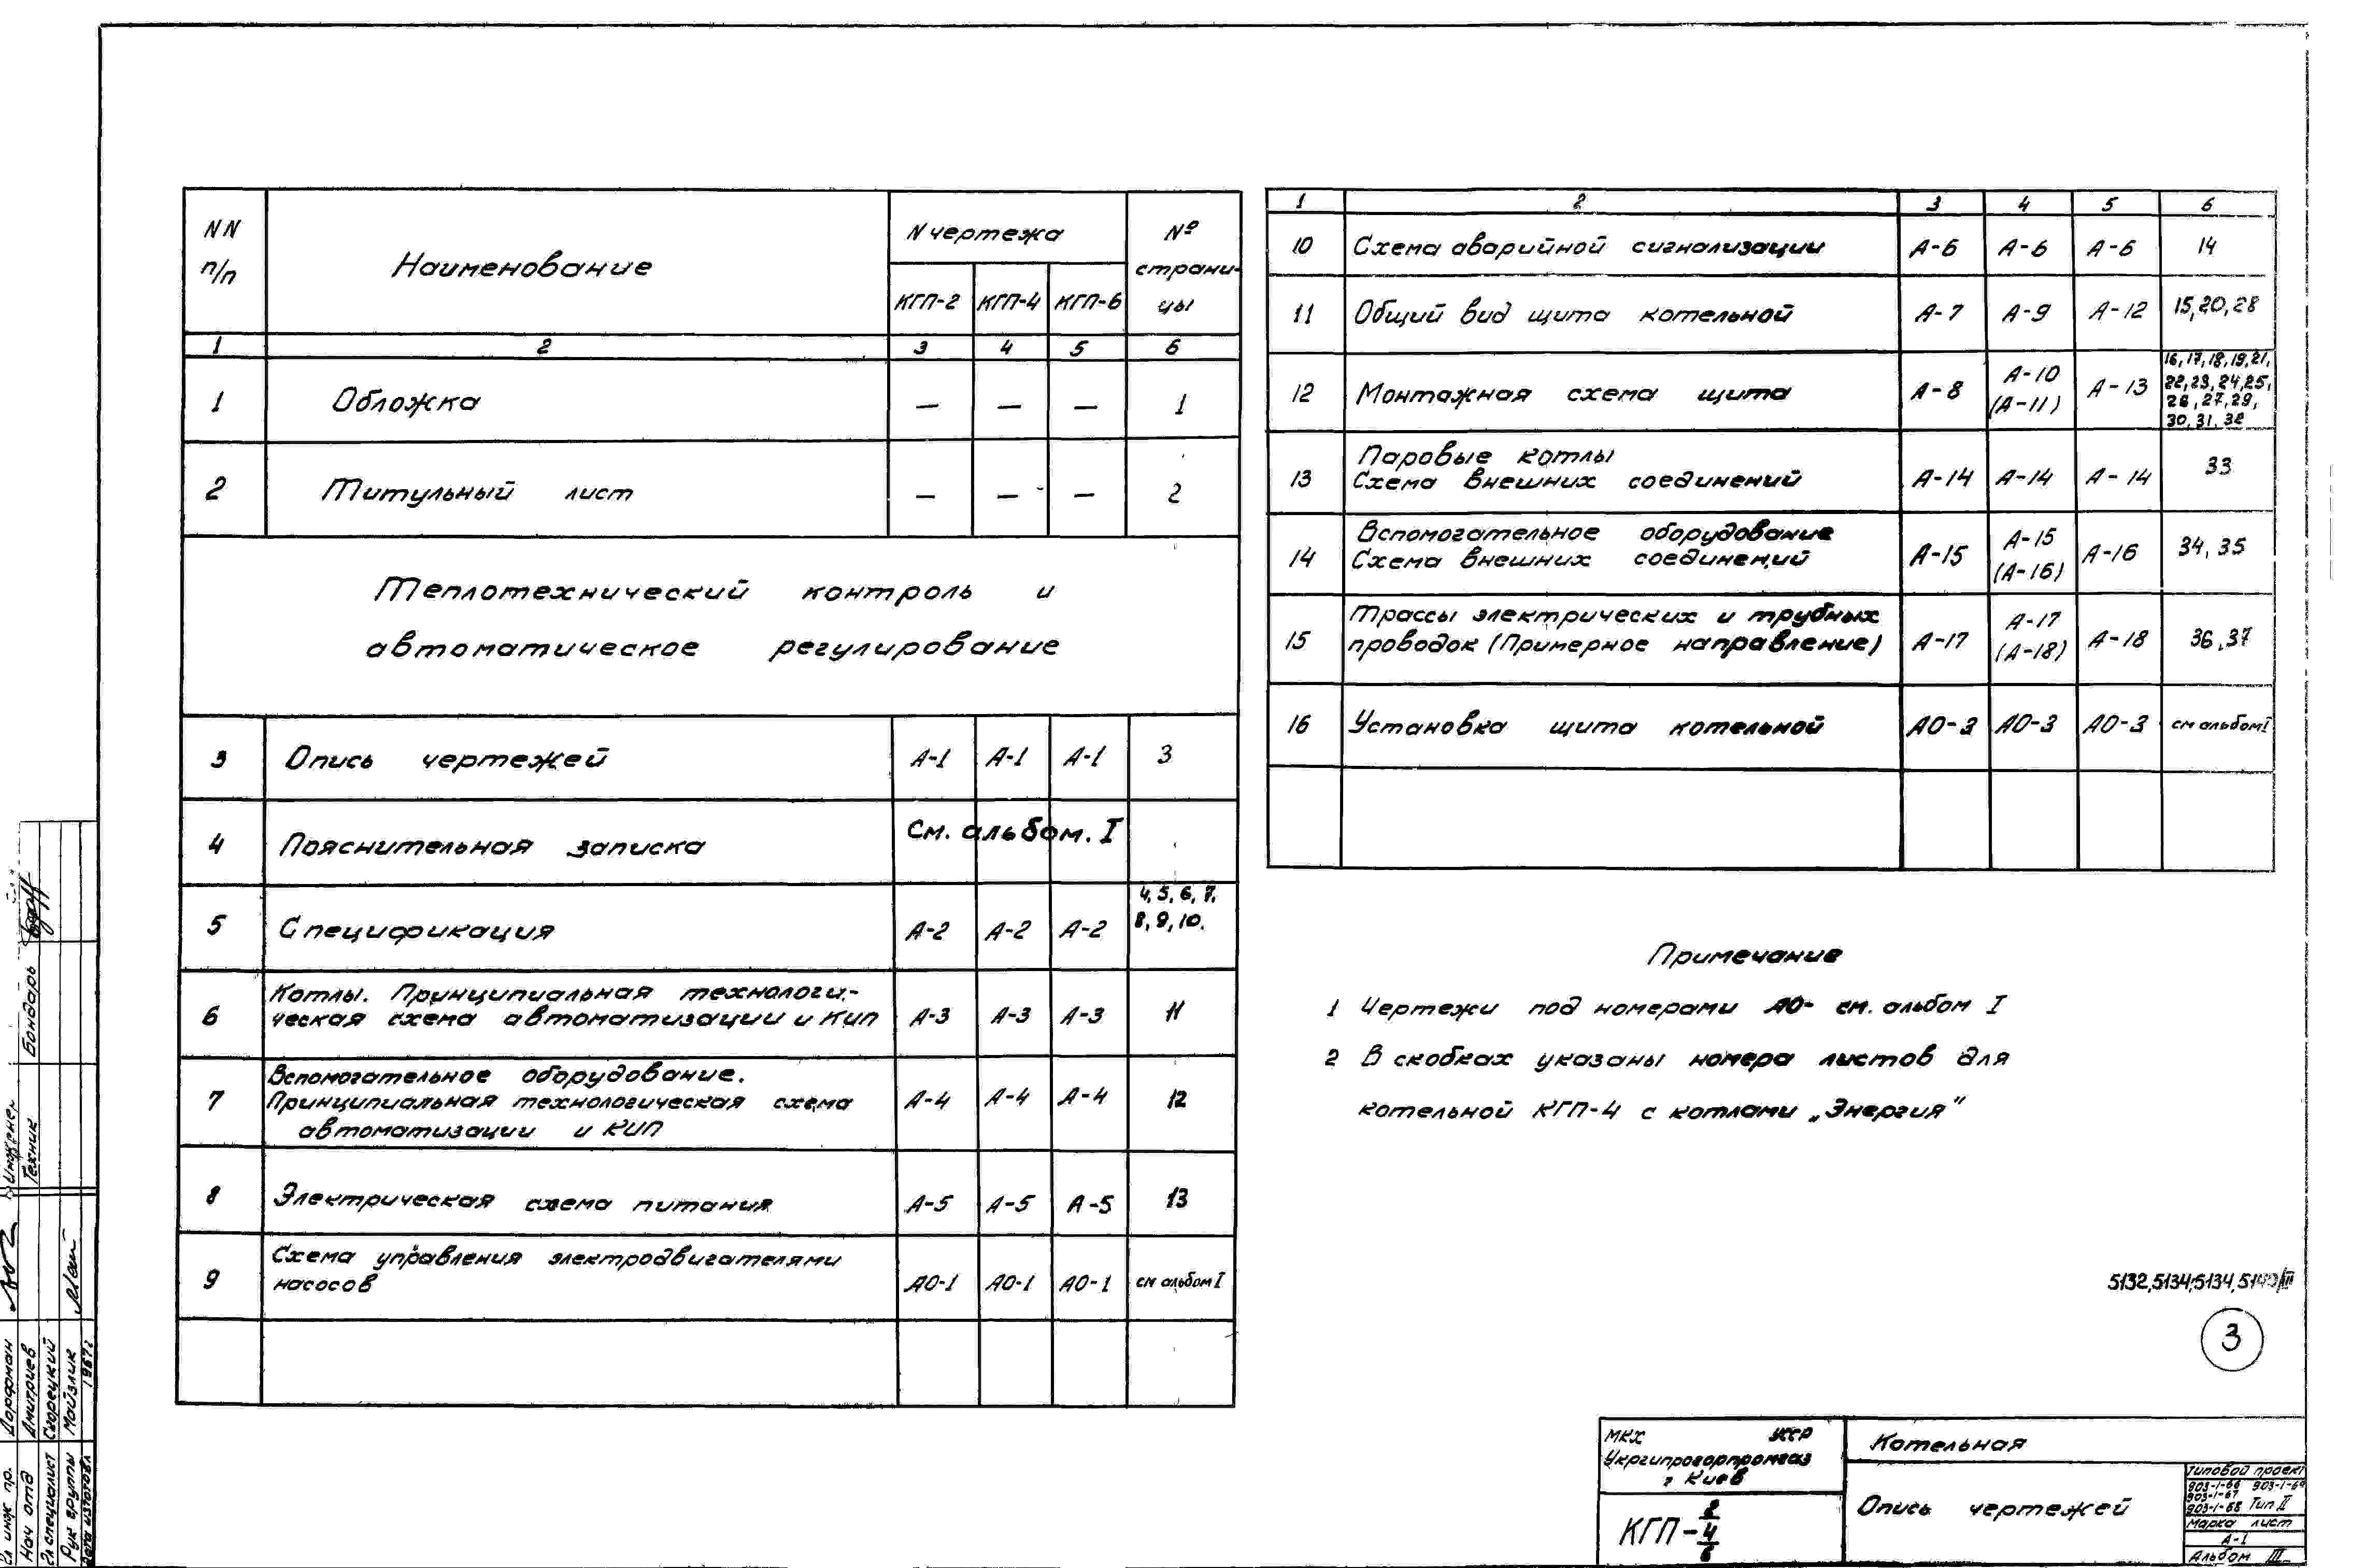 NN п/п Наименование N чертежа № страни-цы
КГП-2 КГП-4 КГП-6
1 2 3 4 5 6
1 Обложка — — — 1
2 Титульный лист — — — 2
Теплотехнический контроль и
автоматическое регулирование
3 Опись чертежей А-1 А-1 А-1 3
4 Пояснительная записка См. альбом. I
5 Спецификация А-2 А-2 А-2 4, 5, 6, 7, 8, 9, 10.
6 Котлы. Принципиальная технологи-
ческая схема автоматизации и КИП А-3 А-3 А-3 11
7 Вспомогательное оборудование.
Принципиальная технологическая схема
автоматизации и КИП А-4 А-4 А-4 12
8 Электрическая схема питания А-5 А-5 А-5 13
9 Схема управления электродвигателями
насосов АО-1 АО-1 АО-1 см альбом I
1 2 3 4 5 6
10 Схема аварийной сигнализации А-6 А-6 А-6 14
11 Общий вид щита котельной А-7 А-9 А-12 15, 20, 28
12 Монтажная схема щита А-8 А-10 (А-11) А-13 16, 17, 18, 19, 21,
22, 23, 24, 25,
26, 27, 29,
30, 31, 32
13 Паровые котлы
Схема внешних соединений А-14 А-14 А-14 33
14 Вспомогательное оборудование
Схема внешних соединений А-15 А-15 (А-16) А-16 34, 35
15 Трассы электрических и трубных
проводок (Примерное направление) А-17 А-17 (А-18) А-18 36, 37
16 Установка щита котельной АО-3 АО-3 АО-3 см альбом I
Примечание
1 Чертежи под номерами АО- см. альбом I
2 В скобках указаны номера листов для
котельной КГП-4 с котлами „Энергия"
5132,5134,5134,5140/III
3
МКХ УССР
Укргипрогорпромгаз
г Киев
КГП-2/4/6
Котельная
Опись чертежей
Типовой проект
903-1-66 903-1-69
903-1-67
903-1-68 Тип II
Марка лист
А-1
Альбом III
Гл инж пр. Дорфман
Нач отд Дмитриев
Гл специалист Скорецкий
Рук группы Мойзлик
Дата изготовл 1967г
Инженер
Техник Бондарь